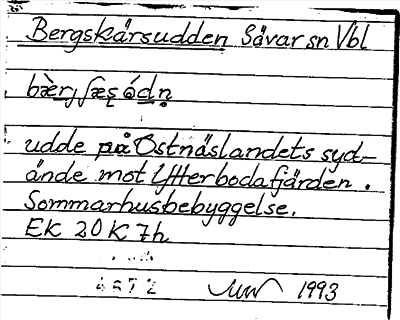 Bergskärsudden Sävar sn Vbl
udde på Ostnäslandets syd-
ände mot Ytterbodafjärden.
Sommarhusbebyggelse.
EK 20K 7h
1993